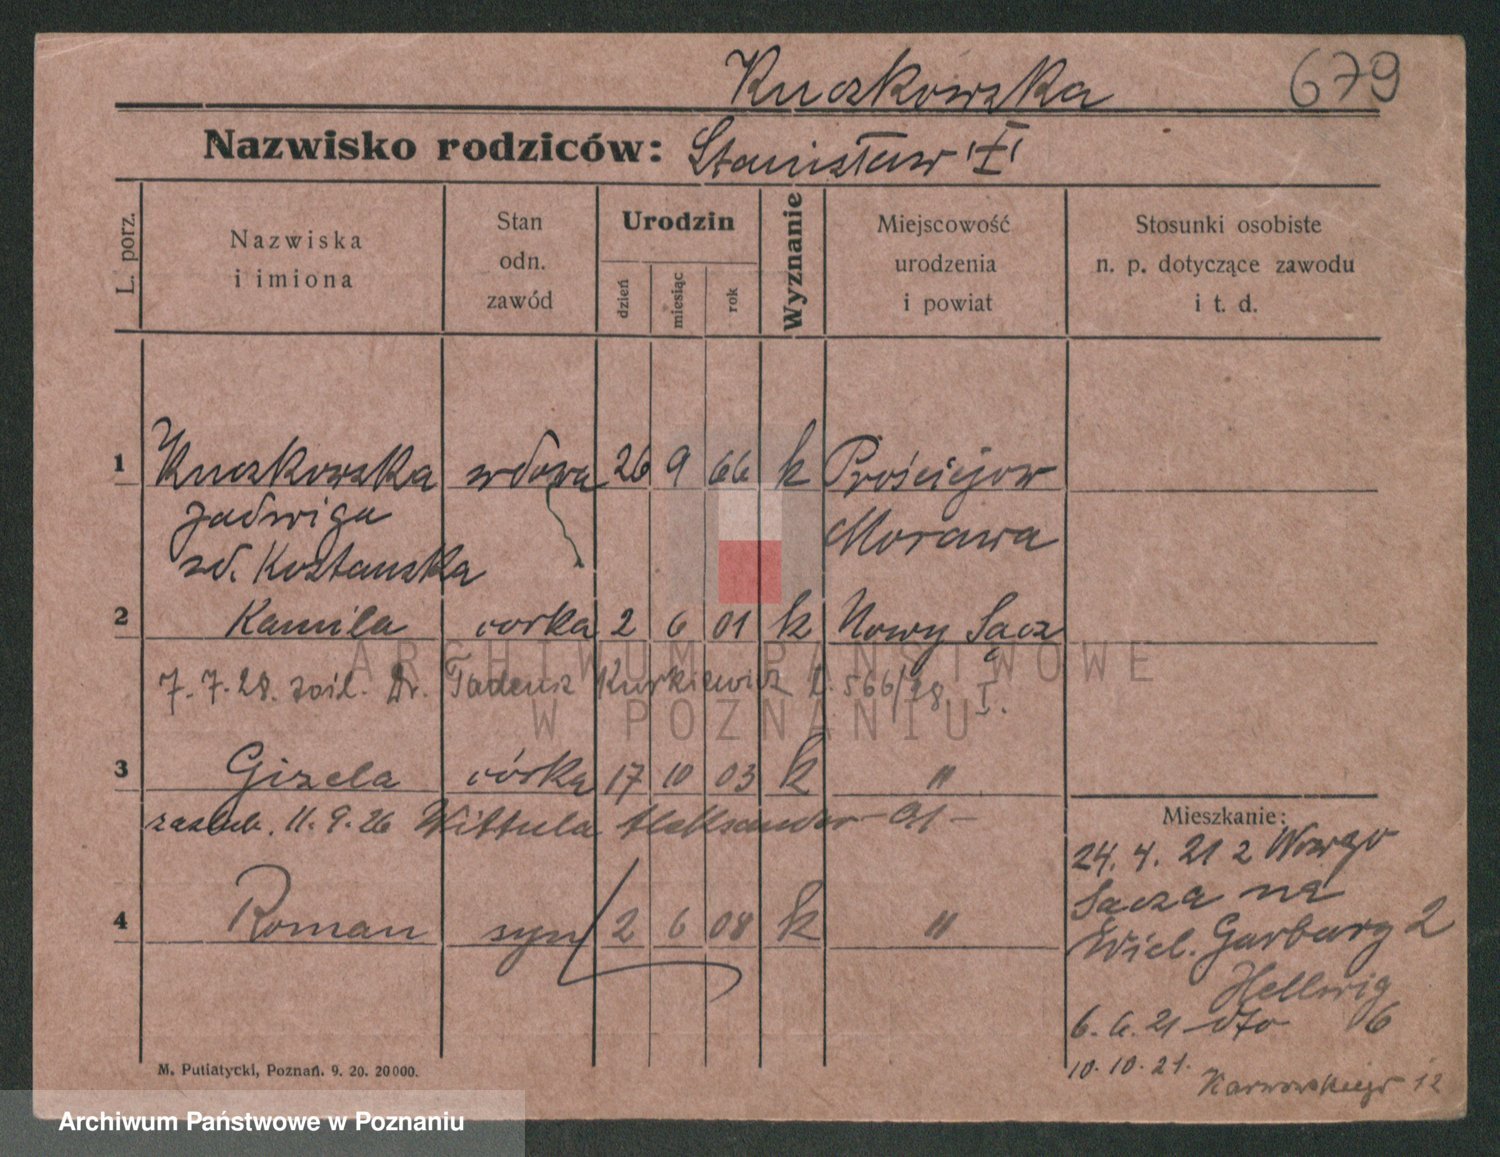 Kuczkowska 679
Nazwisko rodziców: Stanisław
L. porz.
Nazwiska
i imiona
Stan
odn.
zawód
Urodzin
dzień
miesiąc
rok
Wyznanie
Miejscowość
urodzenia
i powiat
Stosunki osobiste
n. p. dotyczące zawodu
i t. d.
1 Kuczkowska wdowa 26 9 66 k Prościejow
Jadwiga Morawa
zd.
2 Kamila córka 2 6 01 k Nowy Sącz
7.7.28. Dr. Tadeusz Kurkiewicz L. 566/28 I.
3 Gizela córka 17 10 03 k "
zaślub. 11.9.26 Wittula Aleksander
4 Roman syn 2 6 08 k "
Mieszkanie:
24. 4. 21 z Nowego
Sącza na
Wiel. Garbary 2
Hellwig
6. 6. 21 dto 6
10. 10. 21. Karwowskiego 12
M. Putiatycki, Poznań. 9. 20. 20000.
ARCHIWUM PAŃSTWOWE
W POZNANIU
Archiwum Państwowe w Poznaniu